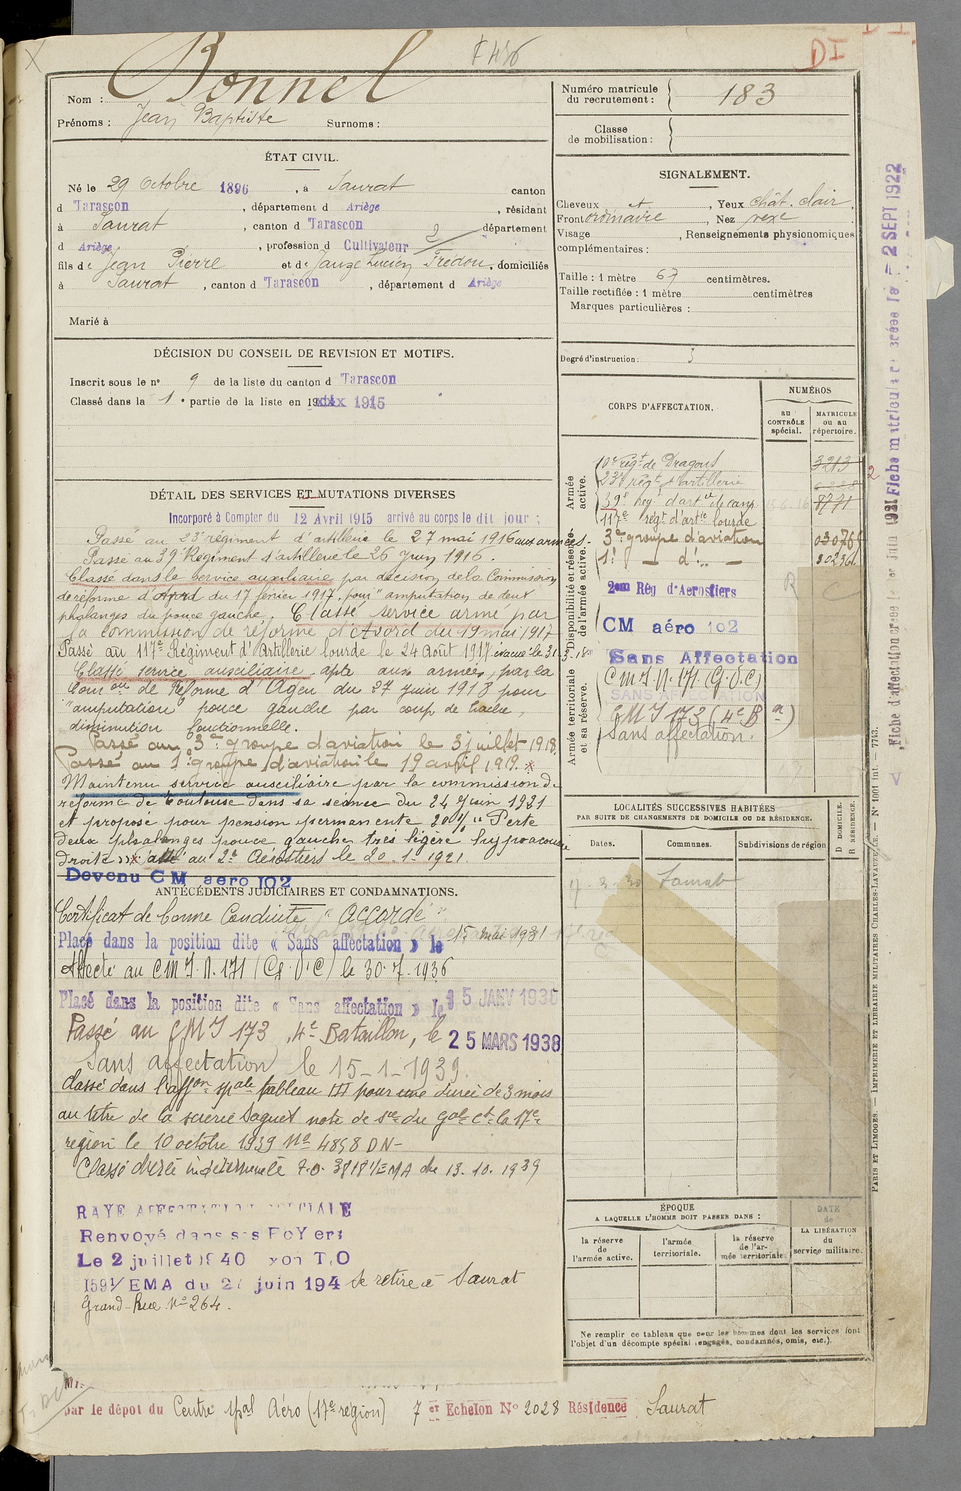 Bonnel
DI
Nom :
Prénoms : Jean Baptiste Surnoms :
Numéro matricule du recrutement : 183
Classe de mobilisation :
ÉTAT CIVIL.
Né le 29 Octobre 1896, à Saurat canton
d Tarascon, département d Ariège, résidant
à Saurat, canton d Tarascon département
d Ariège, profession d Cultivateur
fils de Jean Pierre et de Fredou, domiciliés
à Saurat, canton d Tarascon, département d Ariège
Marié à
SIGNALEMENT.
Cheveux et, Yeux chât. clair,
Front ordinaire, Nez vexe
Visage, Renseignements physionomiques
complémentaires :
Taille : 1 mètre 67 centimètres.
Taille rectifiée : 1 mètre centimètres
Marques particulières :
Degré d'instruction : 3
DÉCISION DU CONSEIL DE REVISION ET MOTIFS.
Inscrit sous le n° 9 de la liste du canton d Tarascon
Classé dans la 1e partie de la liste en 1915
DÉTAIL DES SERVICES ET MUTATIONS DIVERSES
Incorporé à Compter du 12 Avril 1915 arrivé au corps le dit jour ;
Passé au 23e régiment d'artillerie le 27 mai 1916 aux armées.
Passé au 39e Régiment d'artillerie le 26 Juin 1916.
Classé dans le service auxiliaire par décision de la Commission
de réforme d'Avord du 17 février 1917, pour "amputation de deux
phalanges du pouce gauche. Classé service armé par
la commission de réforme d'Avord du 19 mai 1917
Passé au 117e Régiment d'Artillerie lourde le 24 Août 1917 évacué le 31.3.18
Classé service auxiliaire apte aux armées, par la
Com on de Réforme d'Agen du 27 juin 1918 pour
"amputation pouce gauche par coup de hache,
diminution fonctionnelle.
Passé au 3e groupe d'aviation le 31 juillet 1918.
Passé au 1e groupe d'aviation le 19 avril 1919.
Maintenu service auxiliaire par la commission de
réforme de Toulouse dans sa séance du 24 Juin 1921
et proposé pour pension permanente 20% "Perte
deux phalanges pouce gauche, très légère hypoacousie
droite" au 2e Aérostiers le 20.1.1921.
Devenu CM aéro 102
ANTÉCÉDENTS JUDICIAIRES ET CONDAMNATIONS.
Certificat de bonne Conduite "Accordé"
Placé dans la position dite « Sans affectation » le 15 mai 1931
Affecté au C M I. N. 171 (G.V.C) le 30.7.1936
Placé dans la position dite « Sans affectation » le 15 JANV 1936
Passé au G M I 173, 4e Bataillon, le 25 MARS 1938
Sans affectation le 15-1-1939.
Classé dans l'affon spale tableau III pour une durée de 3 mois
au titre de la scierie Saquet note de sce du Gal Ct la 17e
région le 10 octobre 1939 No 4858 DN-
Classé durée indéterminée T.O. 3818 1/EMA du 13.10.1939
RAYE AFFECTATION SPECIALE
Renvoyé dans ses FoYers
Le 2 juillet 1940 T.O
1591/EMA du 2 juin 194 Se retire à Saurat
Grand-Rue No 264.
par le dépot du Centre spal Aéro (17e région) 7 er Echelon No 2028 Résidence Saurat
CORPS D'AFFECTATION.
NUMÉROS
au CONTRÔLE spécial.
MATRICULE ou au répertoire.
Armée active.
10e régt de Dragons 3213
23e régt d'artillerie
39e Reg. d'art ie de camp 8771
117e régt d'art ie lourde
Disponibilité et réserve de l'armée active.
3e groupe d'aviation
1e — d° —
2em Rég d'Aerostiers
CM aéro 102
Sans Affectation
Armée territoriale et sa réserve.
C M I. N. 171 (G.V.C)
SANS AFFECTATION
G M I 173 (4e B on)
Sans affectation.
LOCALITÉS SUCCESSIVES HABITÉES
PAR SUITE DE CHANGEMENTS DE DOMICILE OU DE RÉSIDENCE.
Dates.
Communes.
Subdivisions de région
D DOMICILE.
R RÉSIDENCE.
Saurat
ÉPOQUE
A LAQUELLE L'HOMME DOIT PASSER DANS :
la réserve de l'armée active.
l'armée territoriale.
la réserve de l'armée territoriale.
DATE de LA LIBÉRATION du service militaire.
Ne remplir ce tableau que pour les hommes dont les services font
l'objet d'un décompte spécial (engagés, condamnés, omis, etc.).
PARIS ET LIMOGES. — IMPRIMERIE ET LIBRAIRIE MILITAIRES CHARLES-LAVAUZELLE. — N° 1001 Int. — 7743.
2 SEPT 1922